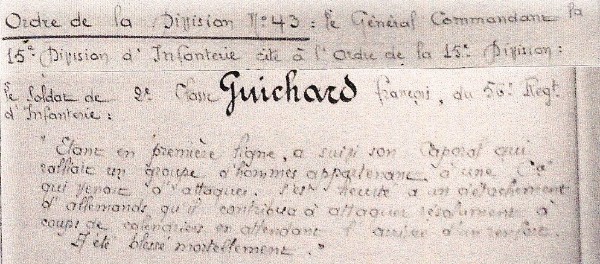 Ordre de la Division N°43 : le Général Commandant la
15e Division d'Infanterie cite à l'Ordre de la 15e Division :
le Soldat de 2e Classe Guichard françois, du 56e Regt.
d'Infanterie :
"Etant en première ligne, a suivi son Caporal qui
ralliait un groupe d'hommes appartenant à une Cie
qui venait d'attaquer. S'est heurté à un détachement
d'allemands qu'il contribua à attaquer résolument à
coups de en attendant l'arrivée d'un renfort.
A été blessé mortellement."